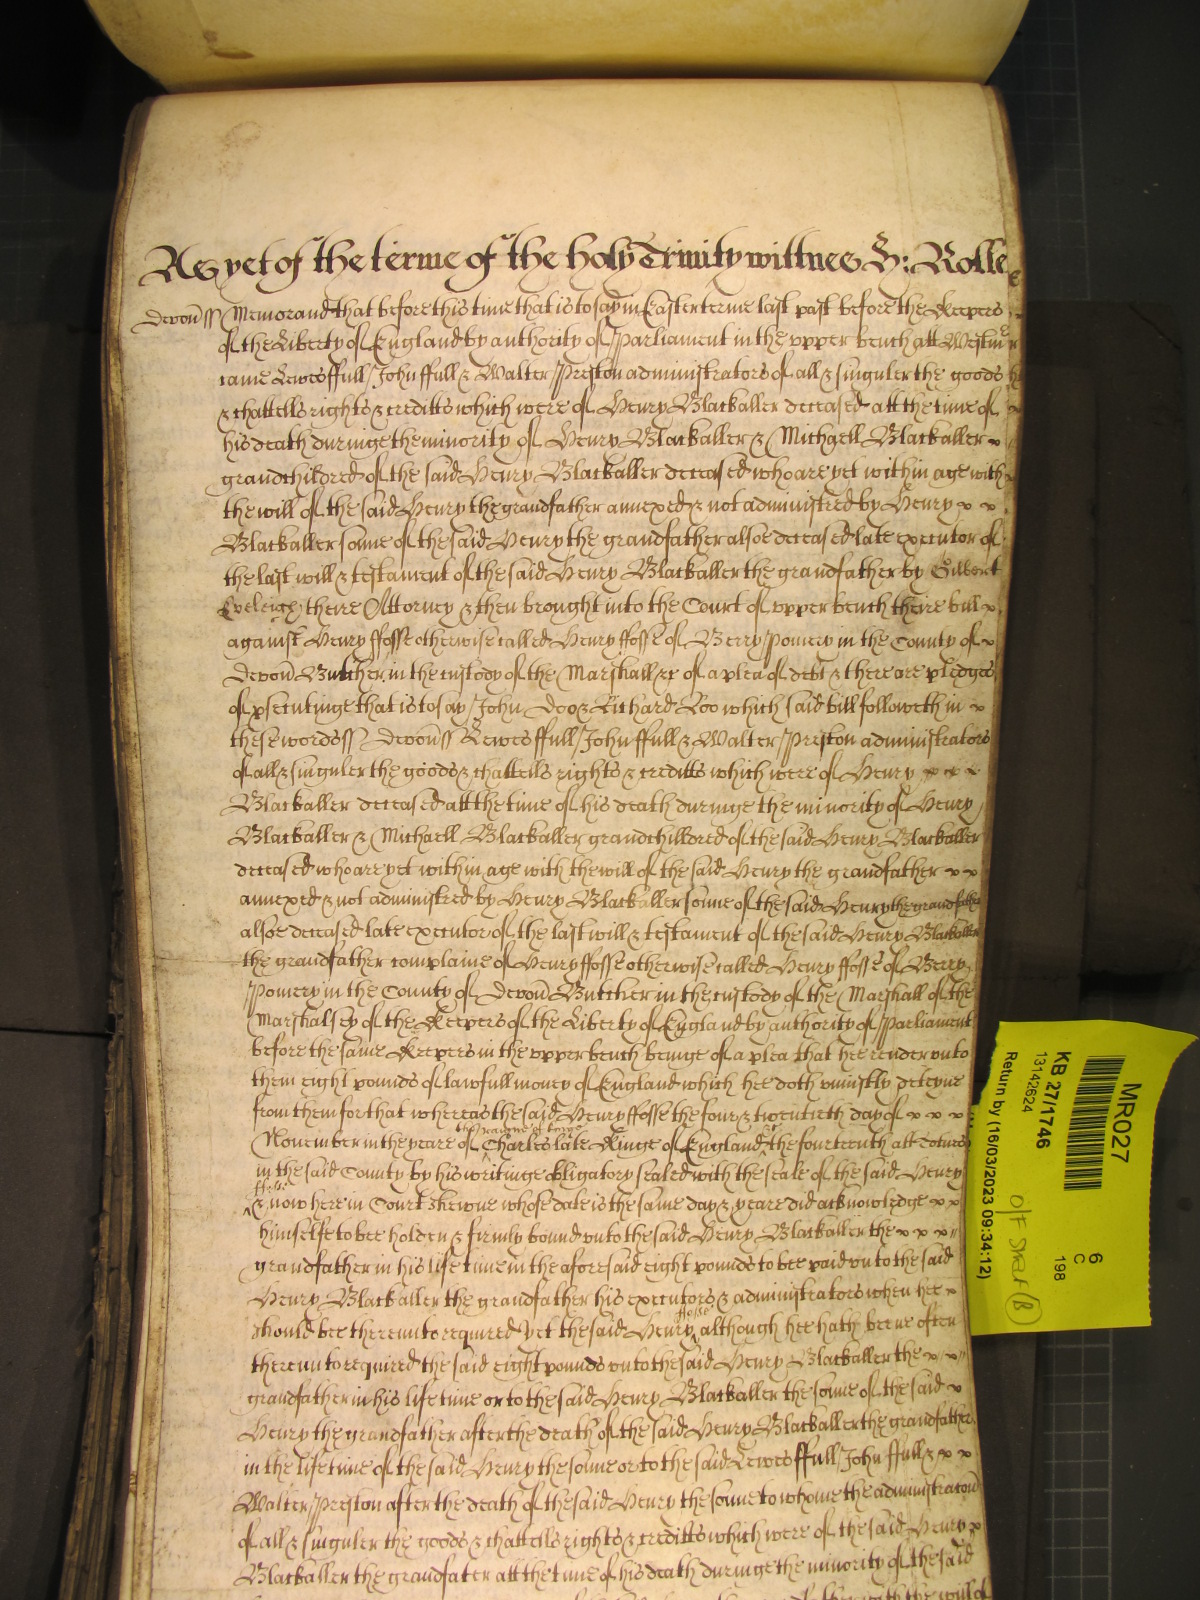 As yet of the terme of the holy Trinity wittnes H: Rolle
Devon ss Memorand that before this time that is to say in Easter terme last past before the Keepers
of the Liberty of England by authority of Parliament in the upper bench att Westm
came Lewes ffull John ffull & Walter Preston administrators of all & singuler the goods
& chattells rights & creditts which were of Henry Blackaller deceased att the time of
his death duringe the minority of Henry Blackaller & Michaell Blackaller
grandchildred of the said Henry Blackaller deceased who are yet within age with
the will of the said Henry the grandfather annexed & not administred by Henry
Blackaller sonne of the said Henry the grandfather alsoe deceased late executor of
the last will & testament of the said Henry Blackaller the grandfather by Gilbert
Eveleigh theire Attorney & then brought into the Court of upper bench theire bill
against Henry ffosse otherwise called Henry ffosse of Berry Pomery in the County of
Devon Butcher in the custody of the Marshall &c of a plea of debt & there are pledges
of psecutinge that is to say John Doo & Richard Roo which said bill followeth in
these words ss Devon ss Lewes ffull John ffull & Walter Preston administrators
of all & singuler the goods & chattells rights & creditts which were of Henry
Blackaller deceased att the time of his death duringe the minority of Henry
Blackaller & Michaell Blackaller grandchilldred of the said Henry Blackaller
deceased who are yet within age with the will of the said Henry the grandfather
annexed & not administred by Henry Blackaller sonne of the said Henry the grandfather
alsoe deceased late executor of the last will & testament of the said Henry Blackaller
the grandfather complaine of Henry ffosse otherwise called Henry ffosse of Berry
Pomery in the County of Devon Butcher in the custody of the Marshall of the
Marshalsey of the Keepers of the Liberty of England by authority of Parliament
before the same Keepers in the upper bench beinge of a plea that hee render unto
them eight pounds of lawfull money of England which hee doth uniustly deteyne
from them for that whereas the said Henry ffosse the four & twentieth day of
November in the yeare of the raigne of Charles late Kinge of England &c the fourteenth att Totnes
in the said County by his writinge obligatory sealed with the seale of the said Henry
ffosse & now here in Court shewne whose date is the same day & yeare did acknowledge
himselfe to bee holden & firmly bound unto the said Henry Blackaller the
grandfather in his life time in the aforesaid eight pounds to bee paid unto the said
Henry Blackaller the grandfather his executors & administrators when hee
should bee thereunto required yet the said Henry ffosse although hee hath beene often
thereunto required the said eight pounds unto the said Henry Blackaller the
grandfather in his life time or to the said Henry Blackaller the sonne of the said
Henry the grandfather after the death of the said Henry Blackaller the grandfather
in the life time of the said Henry the sonne or to the said Lewes ffull John ffull &
Walter Preston after the death of the said Henry the sonne to whome the administracon
of all & singuler the goods & chattells rights & creditts which were of the said Henry
Blackaller the grandfater att the time of his death duringe the minority of the said
MR027
6
C
198
KB 27/1746
13142624
Return by (16/03/2023 09:34:12)